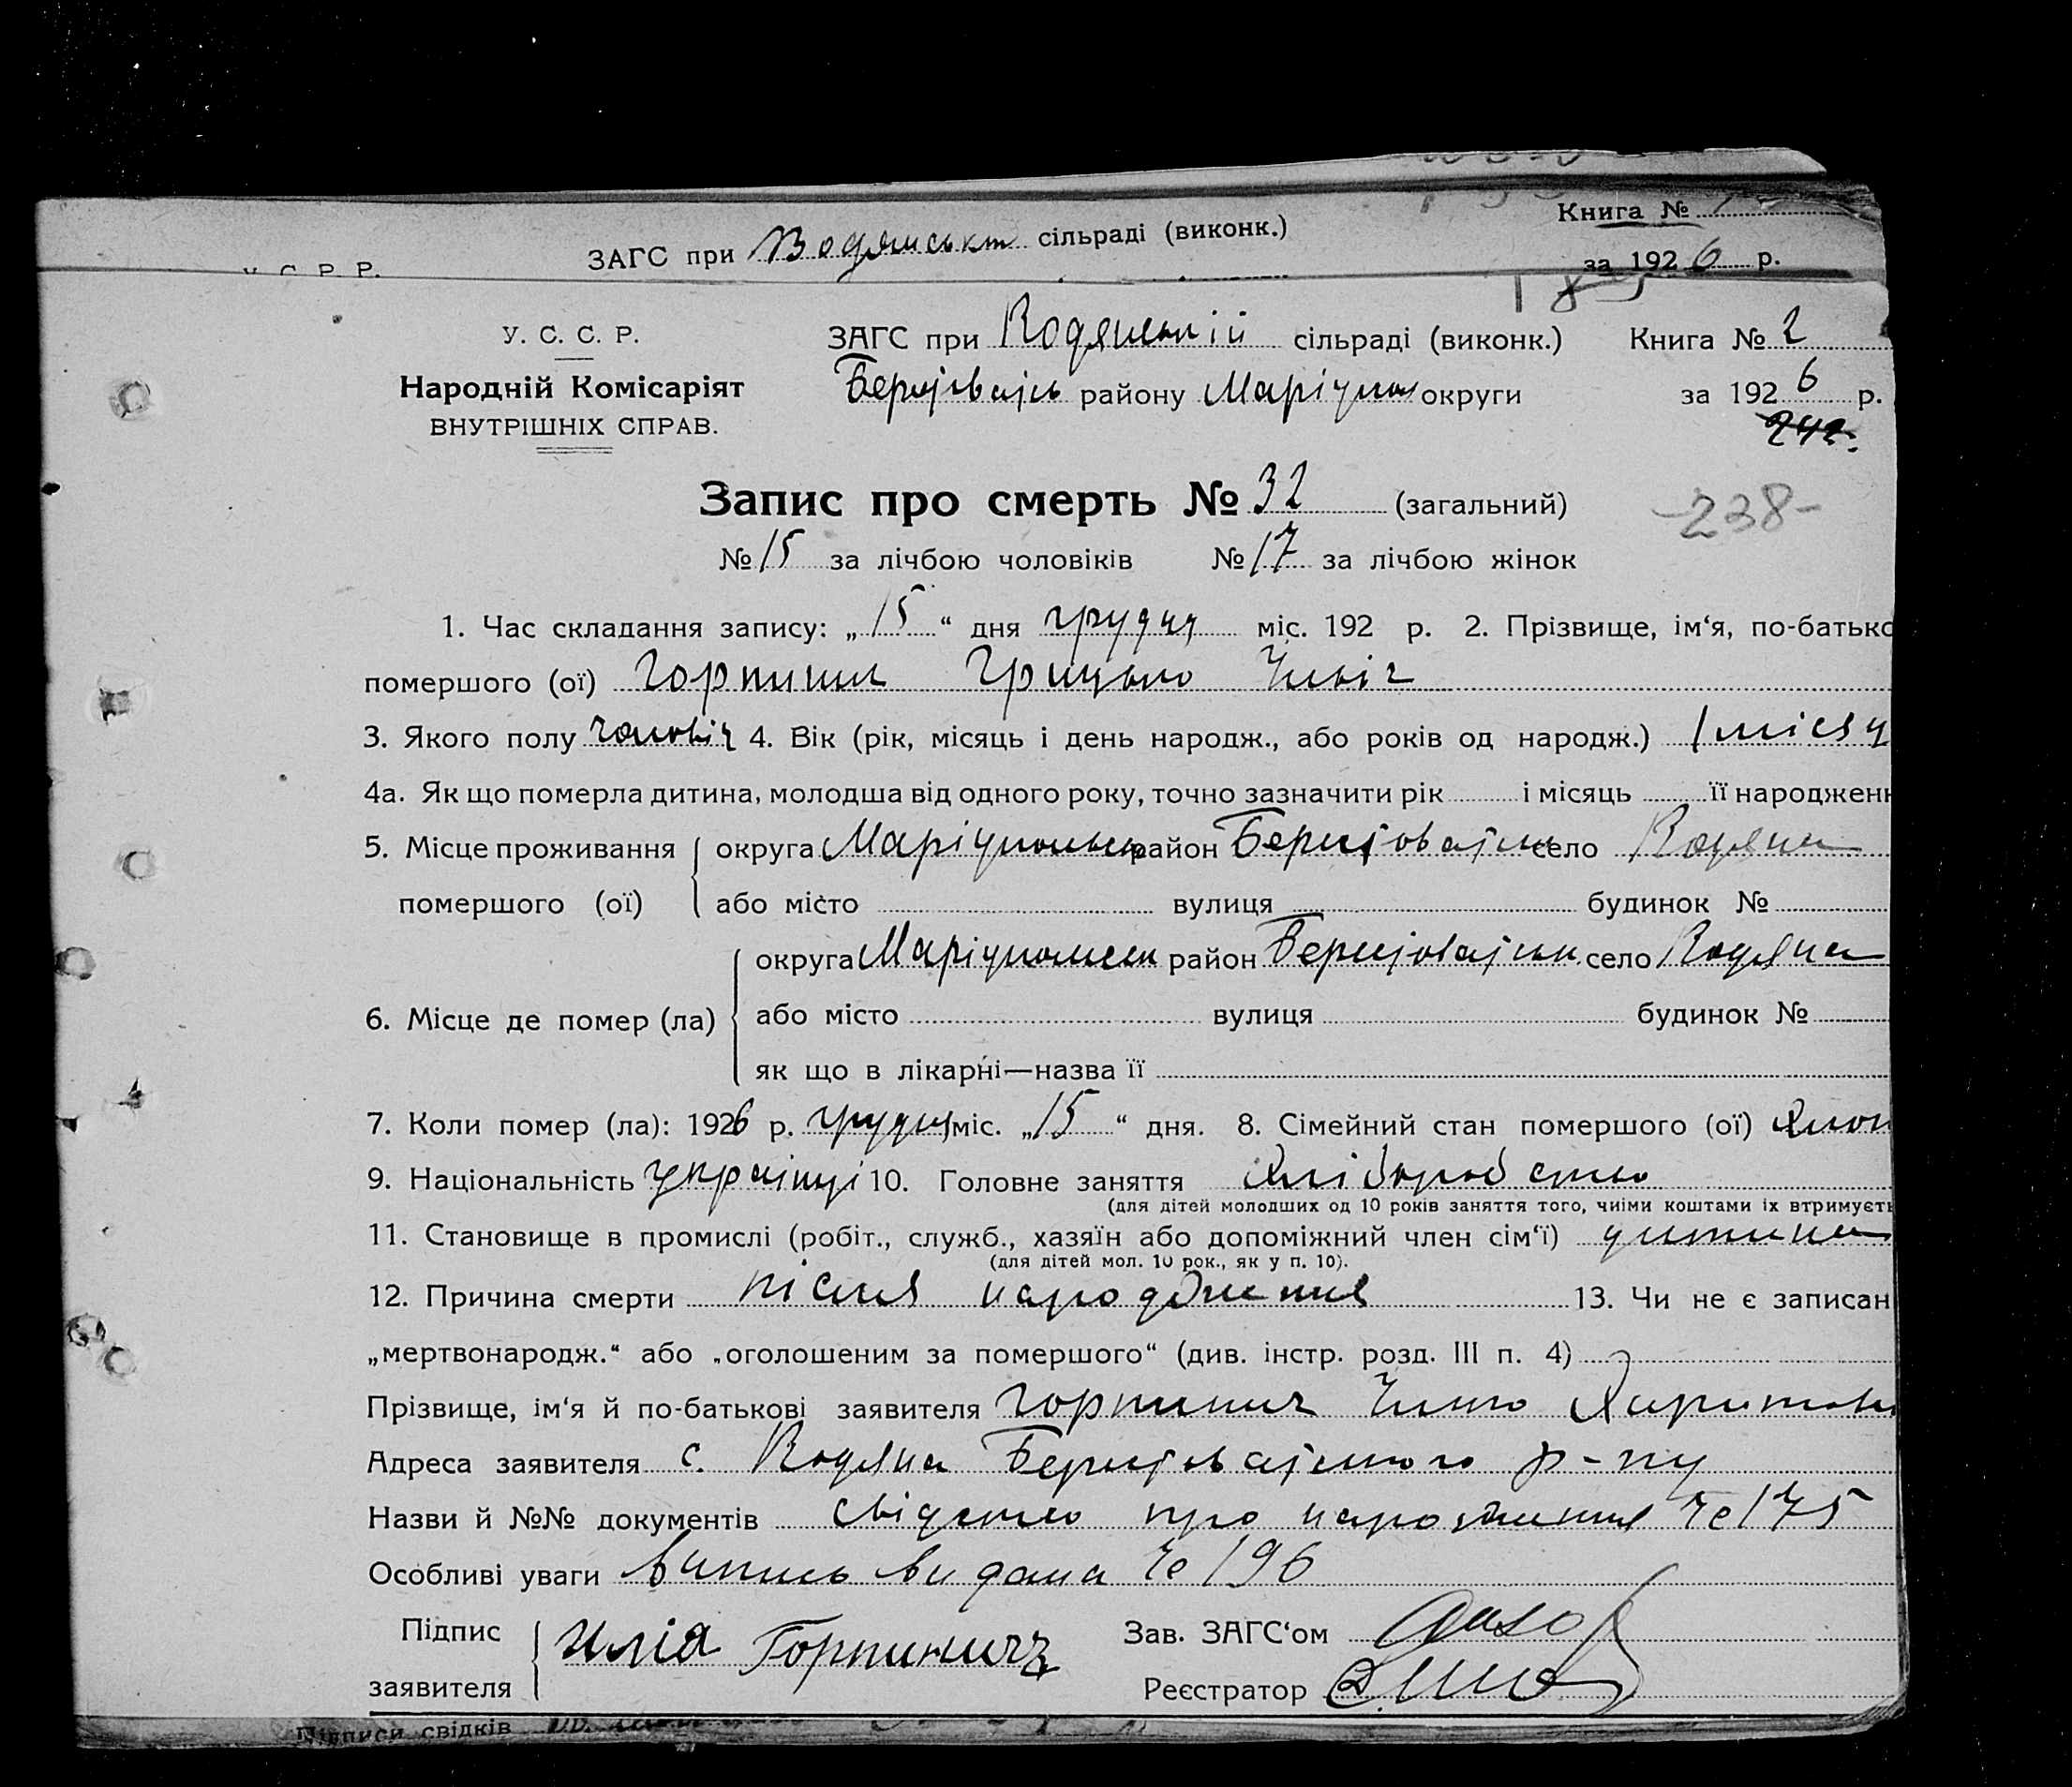 ЗАГС при Водянськ сільраді (виконк.) Книга №
У. С. Р. Р. за 1926 р.
У. С. С. Р. ЗАГС при Водянській сільраді (виконк.) Книга № 2
Народній Комісаріят району Маріупол округи за 1926 р.
ВНУТРІШНІХ СПРАВ. 242.
Запис про смерть № 32 (загальний) -238-
№ 15 за лічбою чоловіків № 17 за лічбою жінок
1. Час складання запису: „15“ дня грудня міс. 192 р. 2. Прізвище, ім‘я, по-батько
помершого (ої) Горпинич Грицько Ільїч
3. Якого полу чоловіч 4. Вік (рік, місяць і день народж., або років од народж.) 1 місяц
4а. Як що померла дитина, молодша від одного року, точно зазначити рік і місяць її народжен
5. Місце проживання округа Маріупольськ район село Водяна
помершого (ої) або місто вулиця будинок №
округа Маріупольськ район село Водяна
6. Місце де помер (ла) або місто вулиця будинок №
як що в лікарні—назва її
7. Коли помер (ла): 1926 р. грудня міс. „15“ дня. 8. Сімейний стан помершого (ої)
9. Національність українці 10. Головне заняття хліборобство
(для дітей молодших од 10 років заняття того, чиїми коштами їх втримуєть
11. Становище в промислі (робіт., служб., хазяїн або допоміжний член сім‘ї) дитина
(для дітей мол. 10 рок., як у п. 10).
12. Причина смерти після народження 13. Чи не є записан
„мертвонародж.“ або „оголошеним за помершого“ (див. інстр. розд. III п. 4)
Прізвище, ім‘я й по-батькові заявителя Горпинич Ілько Харитон
Адреса заявителя с. Водяна р-ну
Назви й №№ документів свідотство про народження № 175
Особливі уваги Випись видана № 196
Підпис Илія Горпиничъ Зав. ЗАГС‘ом
заявителя Реєстратор
Підписи свідків